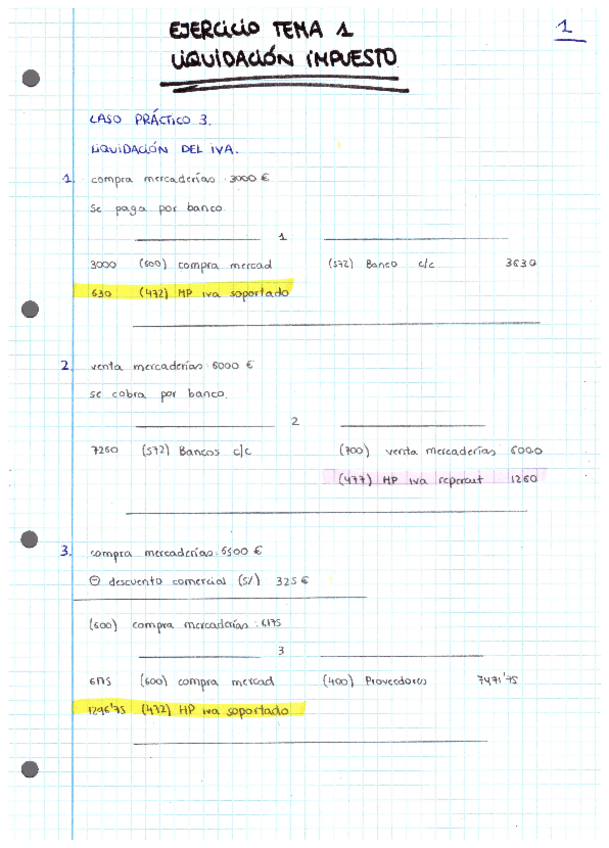 EJERCICIO TEMA 1
LIQUIDACIÓN IMPUESTO
1
CASO PRÁCTICO 3.
LIQUIDACIÓN DEL IVA.
1. compra mercaderías 3000 €
Se paga por banco.
1
3000 (600) compra mercad (572) Banco c/c 3630
630 (472) HP iva soportado
2. venta mercaderías 6000 €
se cobra por banco.
2
7260 (572) Bancos c/c (700) venta mercaderías 6000
(477) HP iva repercut 1260
3. compra mercaderías: 6500 €
⊖ descuento comercial (5%) 325 €
(600) compra mercaderías: 6175
3
6175 (600) compra mercad (400) Proveedores 7471'75
1296'75 (472) HP iva soportado